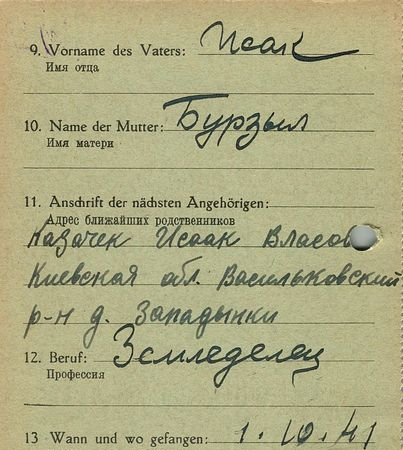 9. Vorname des Vaters: Исак
Имя отца
10. Name der Mutter: Бурзыл
Имя матери
11. Anschrift der nächsten Angehörigen:
Адрес ближайших родственников
Казачек Исаак Власов
Киевская обл. Васильковский
р-н д. Западынки
12. Beruf: Земледелец
Профессия
13 Wann und wo gefangen: 1.10.41